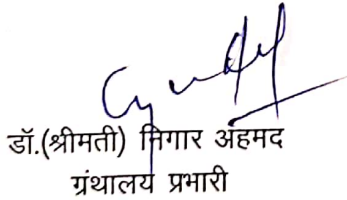 डॉ.(श्रीमती) निगार अहमद
ग्रंथालय प्रभारी